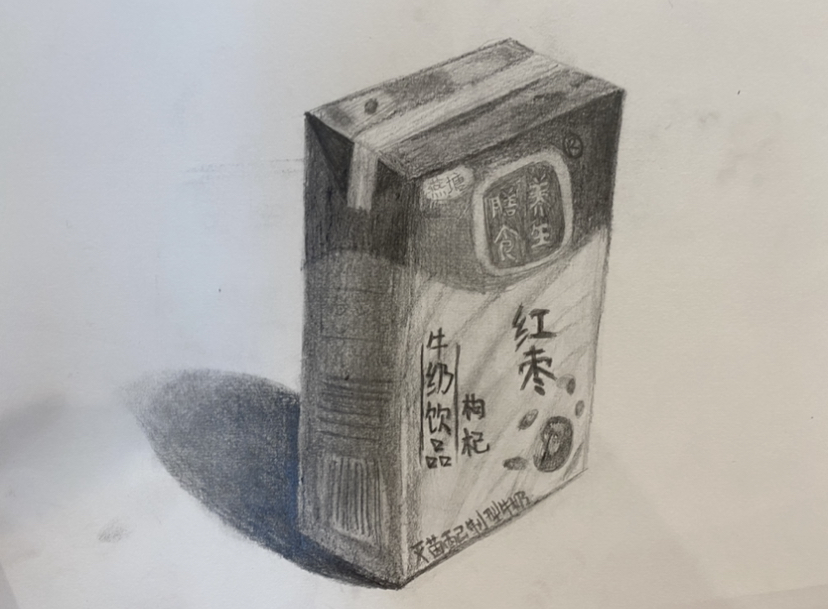 燕塘
养生
膳食
红枣
枸杞
牛奶饮品
灭菌配制型牛奶